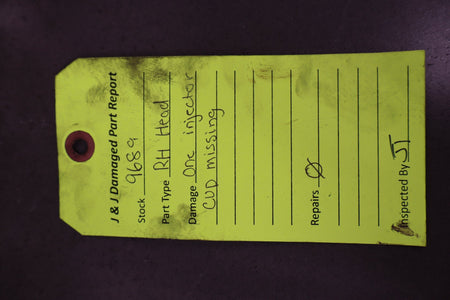 J & J Damaged Part Report
Stock 9689
Part Type RH Head
Damage One injector
cup missing
Repairs Ø
Inspected By JT